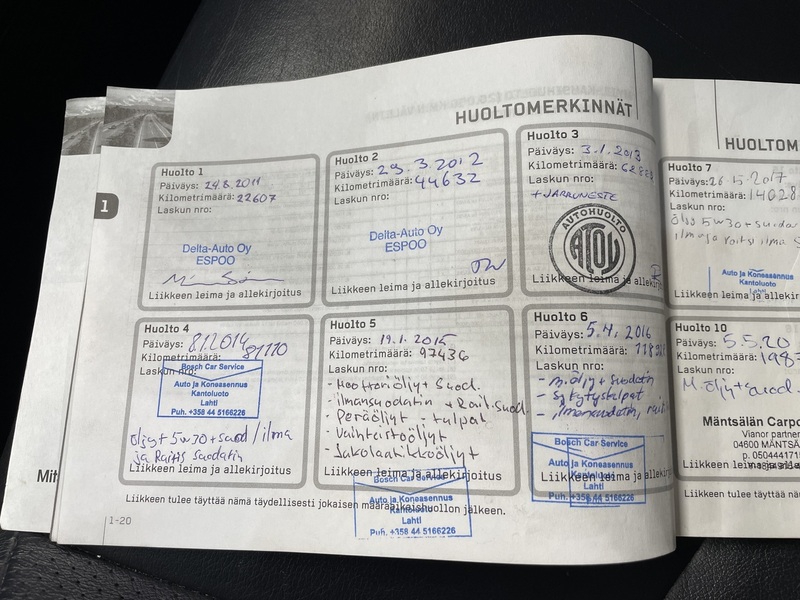 HUOLTOMERKINNÄT
1
Huolto 1
Päiväys: 24.8.2011
Kilometrimäärä: 22607
Laskun nro:
Delta-Auto Oy
ESPOO
Liikkeen leima ja allekirjoitus
Huolto 2
Päiväys: 29.3.2012
Kilometrimäärä: 44632
Laskun nro:
Delta-Auto Oy
ESPOO
Liikkeen leima ja allekirjoitus
Huolto 3
Päiväys: 3.1.2013
Kilometrimäärä:
Laskun nro:
+JARRUNESTE
AUTOHUOLTO
ATOY
Liikkeen leima ja allekirj
Huolto 4
Päiväys: 8.1.2014
Kilometrimäärä: 81110
Laskun nro:
Bosch Car Service
Auto ja Koneasennus
Kantoluoto
Lahti
Puh. +358 44 5166226
öljyt 5w30 + suod / ilma
ja Raitis suodatin
Liikkeen leima ja allekirjoitus
Huolto 5
Päiväys: 19.1.2015
Kilometrimäärä: 97436
Laskun nro:
- Moottoriöljy + Suod.
- ilmansuodatin + Rait.suod.
- Peräöljyt - tulpat
- Vaihteistoöljyt
- Jakolaatikkoöljyt
Liikkeen leima ja allekirjoitus
Bosch Car Service
Auto ja Koneasennus
Kantoluoto
Lahti
Puh. +358 44 5166226
Huolto 6
Päiväys: 5.4.2016
Kilometrimäärä:
Laskun nro:
- m.öljy + suodatin
- Sytytystulpat
- ilmansuodatin,
Bosch Car Service
Auto ja Koneasennus
Lahti
Puh. +358 44 5166226
Liikkeen leima ja allekirj
Liikkeen tulee täyttää nämä täydellisesti jokaisen määräaikaishuollon jälkeen.
1-20
HUOLTOM
Huolto 7
Päiväys: 26.5.2017
Kilometrimäärä: 14028
Laskun nro:
öljy 5w30 + suoda
Auto ja Koneasennus
Kantoluoto
Lahti
Liikkeen leima ja allekir
Huolto 10
Päiväys: 5.5.20
Kilometrimäärä: 1987
Laskun nro:
M.öljy + suod.
Mäntsälän Carpo
Vianor partner
04600 MÄNTSÄ
p. 050444171
Liikkeen leima ja allekir
Liikkeen tulee täyttää nä
Mit